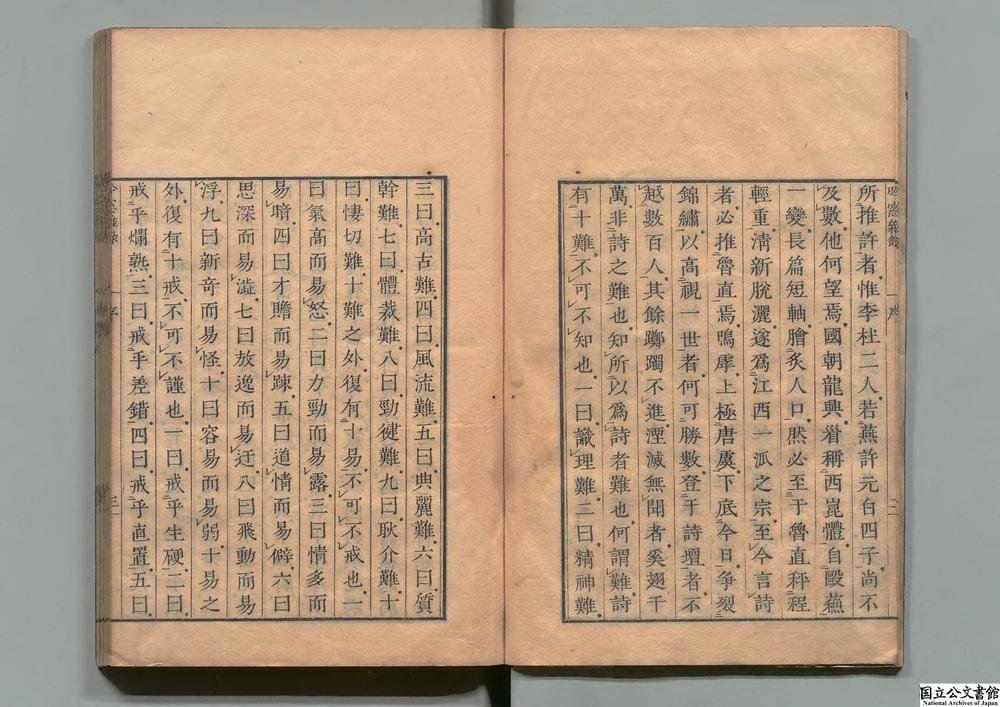 所推許者惟李杜二人若燕許元白四子尚不
及數他何望焉國朝龍興崔稱西崑體自歐蘇
一變長篇短軸膾炙人口然必至于魯直秤程
輕重淸新脫灑遂爲江西一泒之宗至今言詩
者必推魯直焉嗚虖上極唐虞下底今日爭裂
錦繡以高視一世者何可勝數登于詩壇者不
越數百人其餘躑躅不進湮滅無聞者奚翅千
萬非詩之難也知所以爲詩者難也何謂難詩
有十難不可不知也一曰識理難三曰精神難
三曰高古難四曰風流難五曰典麗難六曰質
幹難七曰體裁難八曰勁健難九曰耿介難十
曰悽切難十難之外復有十易不可不戒也一
曰氣高而易怒二曰力勁而易露三曰情多而
易暗四曰才贍而易踈五曰道情而易僻六曰
思深而易澁七曰放逸而易迂八曰飛動而易
浮九曰新奇而易怪十曰容易而易弱十易之
外復有十戒不可不謹也一曰戒乎生硬二曰
戒乎爛熟三曰戒乎差錯四曰戒乎直置五曰
序
三
国立公文書館
National Archives of Japan